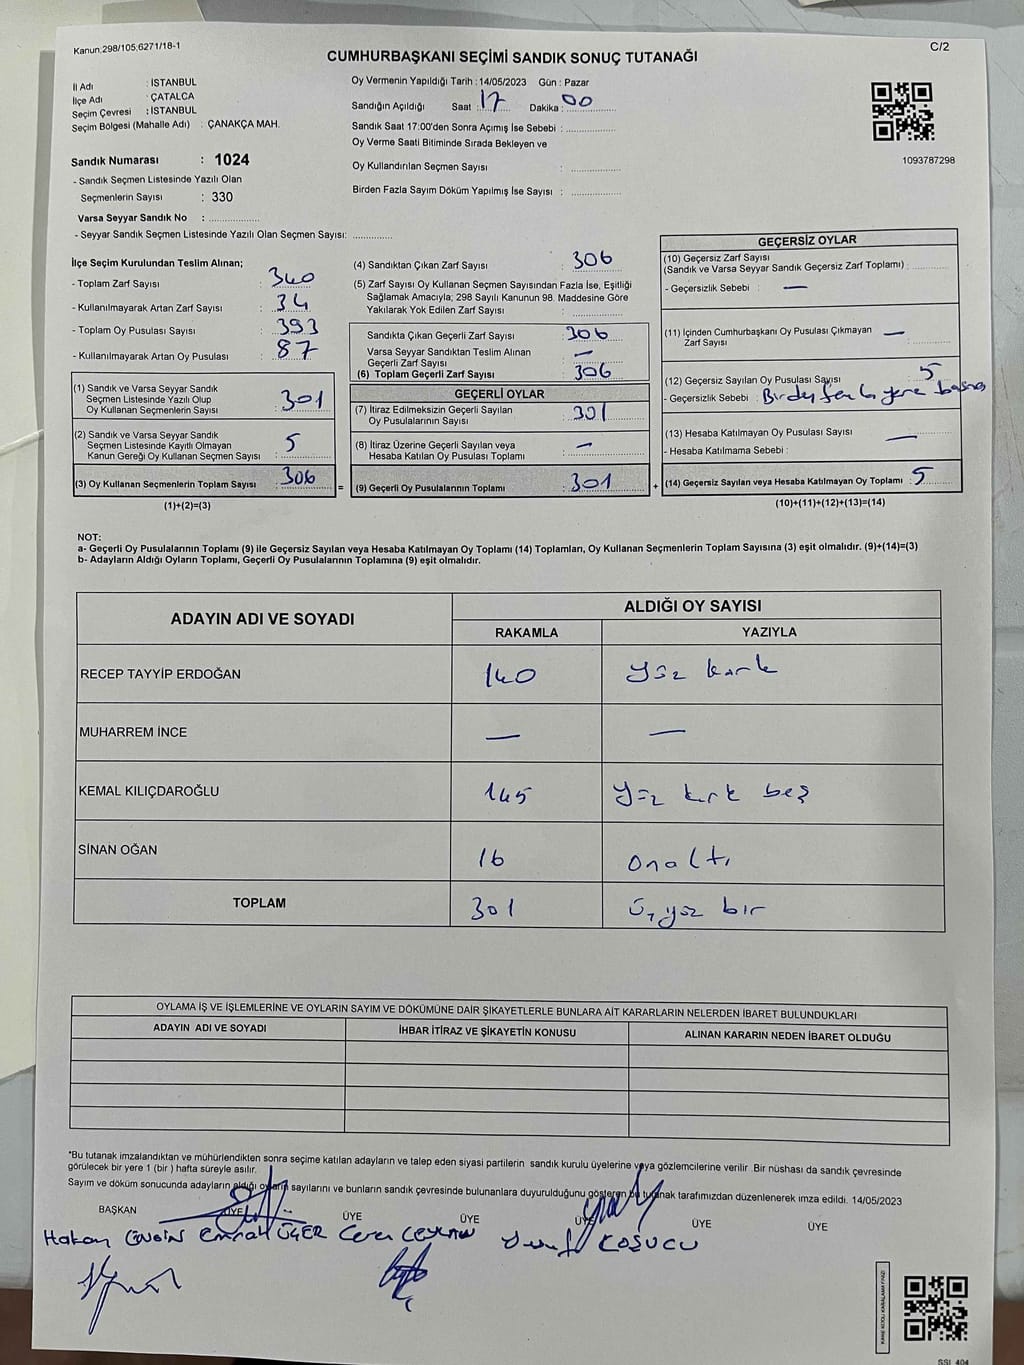 Kanun;298/105;6271/18-1
C/2
CUMHURBAŞKANI SEÇİMİ SANDIK SONUÇ TUTANAĞI
İl Adı : İSTANBUL
İlçe Adı : ÇATALCA
Seçim Çevresi : İSTANBUL
Seçim Bölgesi (Mahalle Adı) : ÇANAKÇA MAH.
Sandık Numarası : 1024
- Sandık Seçmen Listesinde Yazılı Olan
Seçmenlerin Sayısı : 330
Varsa Seyyar Sandık No : ................
- Seyyar Sandık Seçmen Listesinde Yazılı Olan Seçmen Sayısı: ............
Oy Vermenin Yapıldığı Tarih : 14/05/2023 Gün : Pazar
Sandığın Açıldığı Saat : 17 Dakika : 00
Sandık Saat 17:00'den Sonra Açımış İse Sebebi : ................
Oy Verme Saati Bitiminde Sırada Bekleyen ve
Oy Kullandırılan Seçmen Sayısı : ................
Birden Fazla Sayım Döküm Yapılmış İse Sayısı : ................
1093787298
İlçe Seçim Kurulundan Teslim Alınan;
- Toplam Zarf Sayısı : 340
- Kullanılmayarak Artan Zarf Sayısı : 34
- Toplam Oy Pusulası Sayısı : 393
- Kullanılmayarak Artan Oy Pusulası : 87
(1) Sandık ve Varsa Seyyar Sandık
Seçmen Listesinde Yazılı Olup
Oy Kullanan Seçmenlerin Sayısı : 301
(2) Sandık ve Varsa Seyyar Sandık
Seçmen Listesinde Kayıtlı Olmayan
Kanun Gereği Oy Kullanan Seçmen Sayısı : 5
(3) Oy Kullanan Seçmenlerin Toplam Sayısı : 306
(1)+(2)=(3)
(4) Sandıktan Çıkan Zarf Sayısı : 306
(5) Zarf Sayısı Oy Kullanan Seçmen Sayısından Fazla İse, Eşitliği
Sağlamak Amacıyla; 298 Sayılı Kanunun 98. Maddesine Göre
Yakılarak Yok Edilen Zarf Sayısı : ................
Sandıkta Çıkan Geçerli Zarf Sayısı : 306
Varsa Seyyar Sandıktan Teslim Alınan
Geçerli Zarf Sayısı : —
(6) Toplam Geçerli Zarf Sayısı : 306
GEÇERLİ OYLAR
(7) İtiraz Edilmeksizin Geçerli Sayılan
Oy Pusulalarının Sayısı : 301
(8) İtiraz Üzerine Geçerli Sayılan veya
Hesaba Katılan Oy Pusulası Toplamı : —
= (9) Geçerli Oy Pusulalarının Toplamı : 301
GEÇERSİZ OYLAR
(10) Geçersiz Zarf Sayısı
(Sandık ve Varsa Seyyar Sandık Geçersiz Zarf Toplamı) :
- Geçersizlik Sebebi : —
(11) İçinden Cumhurbaşkanı Oy Pusulası Çıkmayan
Zarf Sayısı : —
(12) Geçersiz Sayılan Oy Pusulası Sayısı 5
- Geçersizlik Sebebi :
(13) Hesaba Katılmayan Oy Pusulası Sayısı : —
- Hesaba Katılmama Sebebi :
+ (14) Geçersiz Sayılan veya Hesaba Katılmayan Oy Toplamı : 5
(10)+(11)+(12)+(13)=(14)
NOT:
a- Geçerli Oy Pusulalarının Toplamı (9) ile Geçersiz Sayılan veya Hesaba Katılmayan Oy Toplamı (14) Toplamları, Oy Kullanan Seçmenlerin Toplam Sayısına (3) eşit olmalıdır. (9)+(14)=(3)
b- Adayların Aldığı Oyların Toplamı, Geçerli Oy Pusulalarının Toplamına (9) eşit olmalıdır.
ADAYIN ADI VE SOYADI ALDIĞI OY SAYISI
RAKAMLA YAZIYLA
RECEP TAYYİP ERDOĞAN 140 Yüz kırk
MUHARREM İNCE — —
KEMAL KILIÇDAROĞLU 145 Yüz kırk beş
SİNAN OĞAN 16 onaltı
TOPLAM 301 üçyüz bir
OYLAMA İŞ VE İŞLEMLERİNE VE OYLARIN SAYIM VE DÖKÜMÜNE DAİR ŞİKAYETLERLE BUNLARA AİT KARARLARIN NELERDEN İBARET BULUNDUKLARI
ADAYIN ADI VE SOYADI İHBAR İTİRAZ VE ŞİKAYETİN KONUSU ALINAN KARARIN NEDEN İBARET OLDUĞU
*Bu tutanak imzalandıktan ve mühürlendikten sonra seçime katılan adayların ve talep eden siyasi partilerin sandık kurulu üyelerine veya gözlemcilerine verilir .Bir nüshası da sandık çevresinde
görülecek bir yere 1 (bir ) hafta süreyle asılır.
Sayım ve döküm sonucunda adayların aldığı oyların sayılarını ve bunların sandık çevresinde bulunanlara duyurulduğunu gösteren bu tutanak tarafımızdan düzenlenerek imza edildi. 14/05/2023
BAŞKAN ÜYE ÜYE ÜYE ÜYE ÜYE ÜYE
Hakan Emrah ÜÇER Ceren Yusuf KOŞUCU
SSI_404